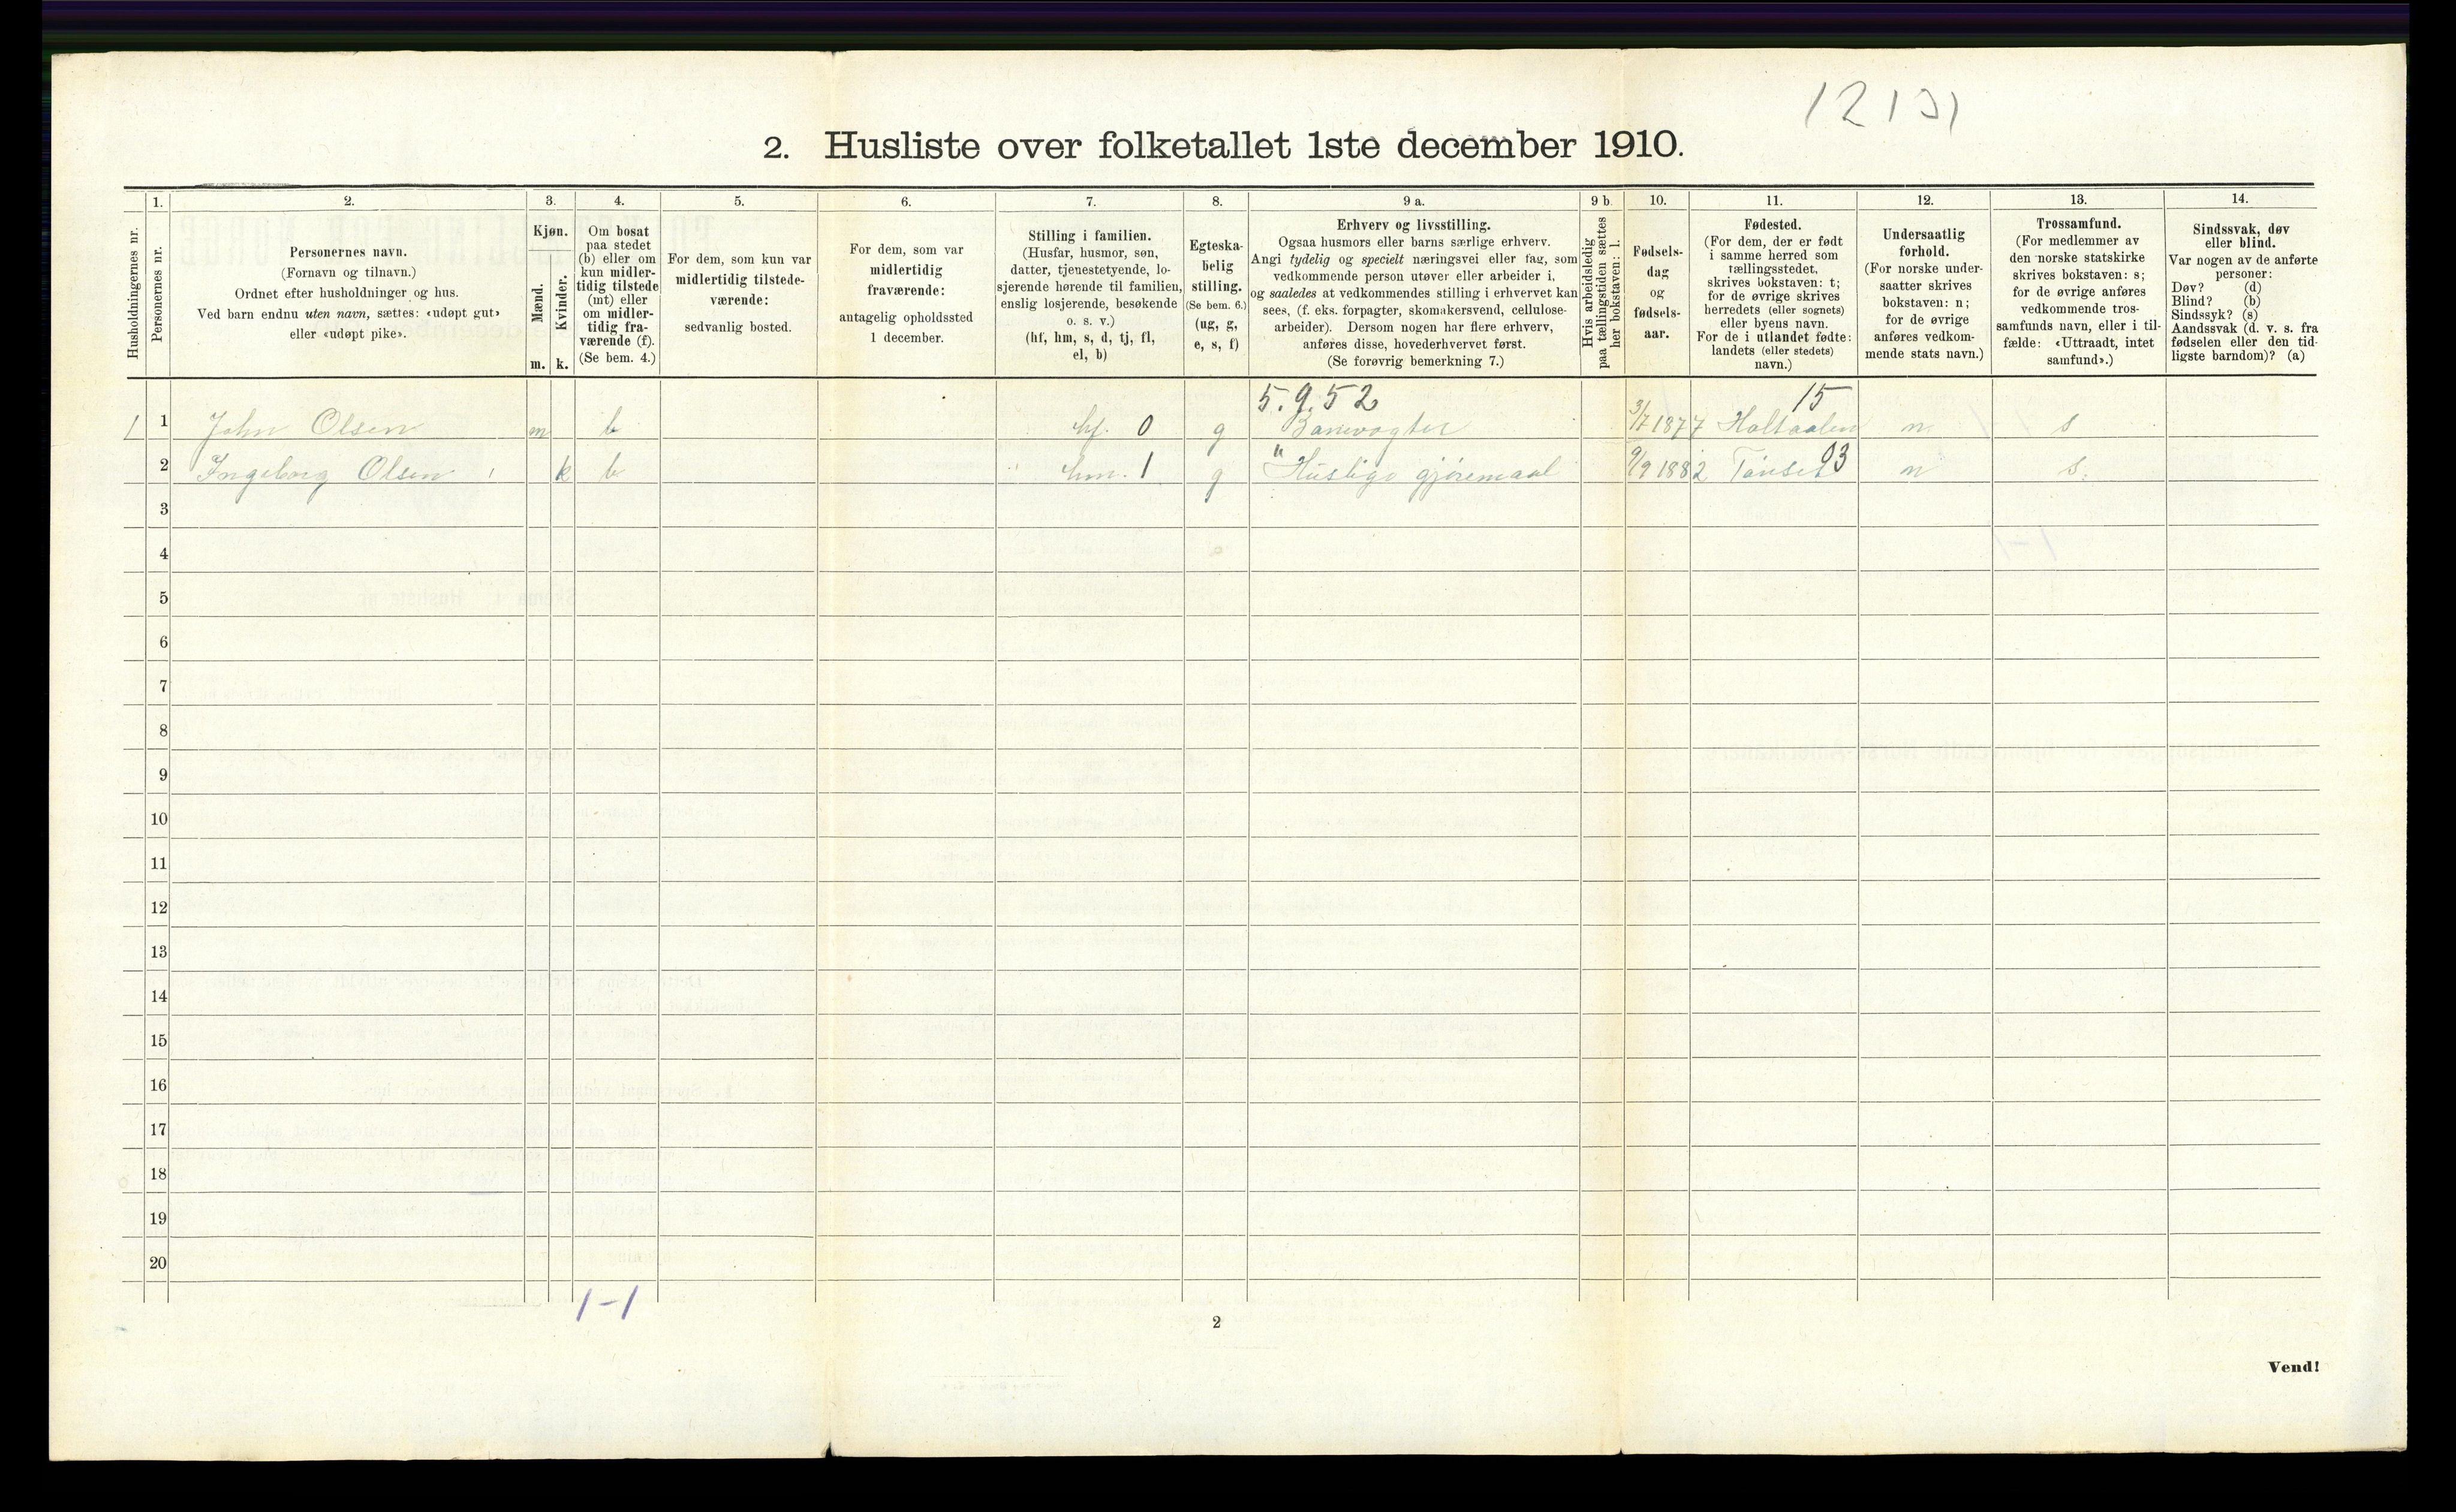 12131
2. Husliste over folketallet 1ste december 1910.
Husholdningernes nr.
1.
Personernes nr.
2.
Personernes navn.
(Fornavn og tilnavn.)
Ordnet efter husholdninger og hus.
Ved barn endnu uten navn, sættes: «udøpt gut»
eller «udøpt pike».
3.
Kjøn.
Mænd.
Kvinder.
m. k.
4.
Om bosat
paa stedet
(b) eller om
kun midler-
tidig tilstede
(mt) eller
om midler-
tidig fra-
værende (f).
(Se bem. 4.)
5.
For dem, som kun var
midlertidig tilstede-
værende:
sedvanlig bosted.
6.
For dem, som var
midlertidig
fraværende:
antagelig opholdssted
1 december.
7.
Stilling i familien.
(Husfar, husmor, søn,
datter, tjenestetyende, lo-
sjerende hørende til familien,
enslig losjerende, besøkende
o. s. v.)
(hf, hm, s, d, tj, fl,
el, b)
8.
Egteska-
belig
stilling.
(Se bem. 6.)
(ug, g,
e, s, f)
9 a.
Erhverv og livsstilling.
Ogsaa husmors eller barns særlige erhverv.
Angi tydelig og specielt næringsvei eller fag, som
vedkommende person utøver eller arbeider i,
og saaledes at vedkommendes stilling i erhvervet kan
sees, (f. eks. forpagter, skomakersvend, cellulose-
arbeider). Dersom nogen har flere erhverv,
anføres disse, hovederhvervet først.
(Se forøvrig bemerkning 7.)
9 b.
Hvis arbeidsledig
paa tællingstiden sættes
her bokstaven: l.
10.
Fødsels-
dag
og
fødsels-
aar.
11.
Fødested.
(For dem, der er født
i samme herred som
tællingsstedet,
skrives bokstaven: t;
for de øvrige skrives
herredets (eller sognets)
eller byens navn.
For de i utlandet fødte:
landets (eller stedets)
navn.)
12.
Undersaatlig
forhold.
(For norske under-
saatter skrives
bokstaven: n;
for de øvrige
anføres vedkom-
mende stats navn.)
13.
Trossamfund.
(For medlemmer av
den norske statskirke
skrives bokstaven: s;
for de øvrige anføres
vedkommende tros-
samfunds navn, eller i til-
fælde: «Uttraadt, intet
samfund».)
14.
Sindssvak, døv
eller blind.
Var nogen av de anførte
personer:
Døv? (d)
Blind? (b)
Sindssyk? (s)
Aandssvak (d. v. s. fra
fødselen eller den tid-
ligste barndom)? (a)
5.9.52 15
1 1 John Olsen m b hf. 0 g Banevogter 3/7 1877 Holtaalen n s
2 Ingeborg Olsen k b hm. 1 g " Huslige gjøremaal 9/9 1882 Tönset 03 n s.
3
4
5
6
7
8
9
10
11
12
13
14
15
16
17
18
19
20
1-1
2
Vend!